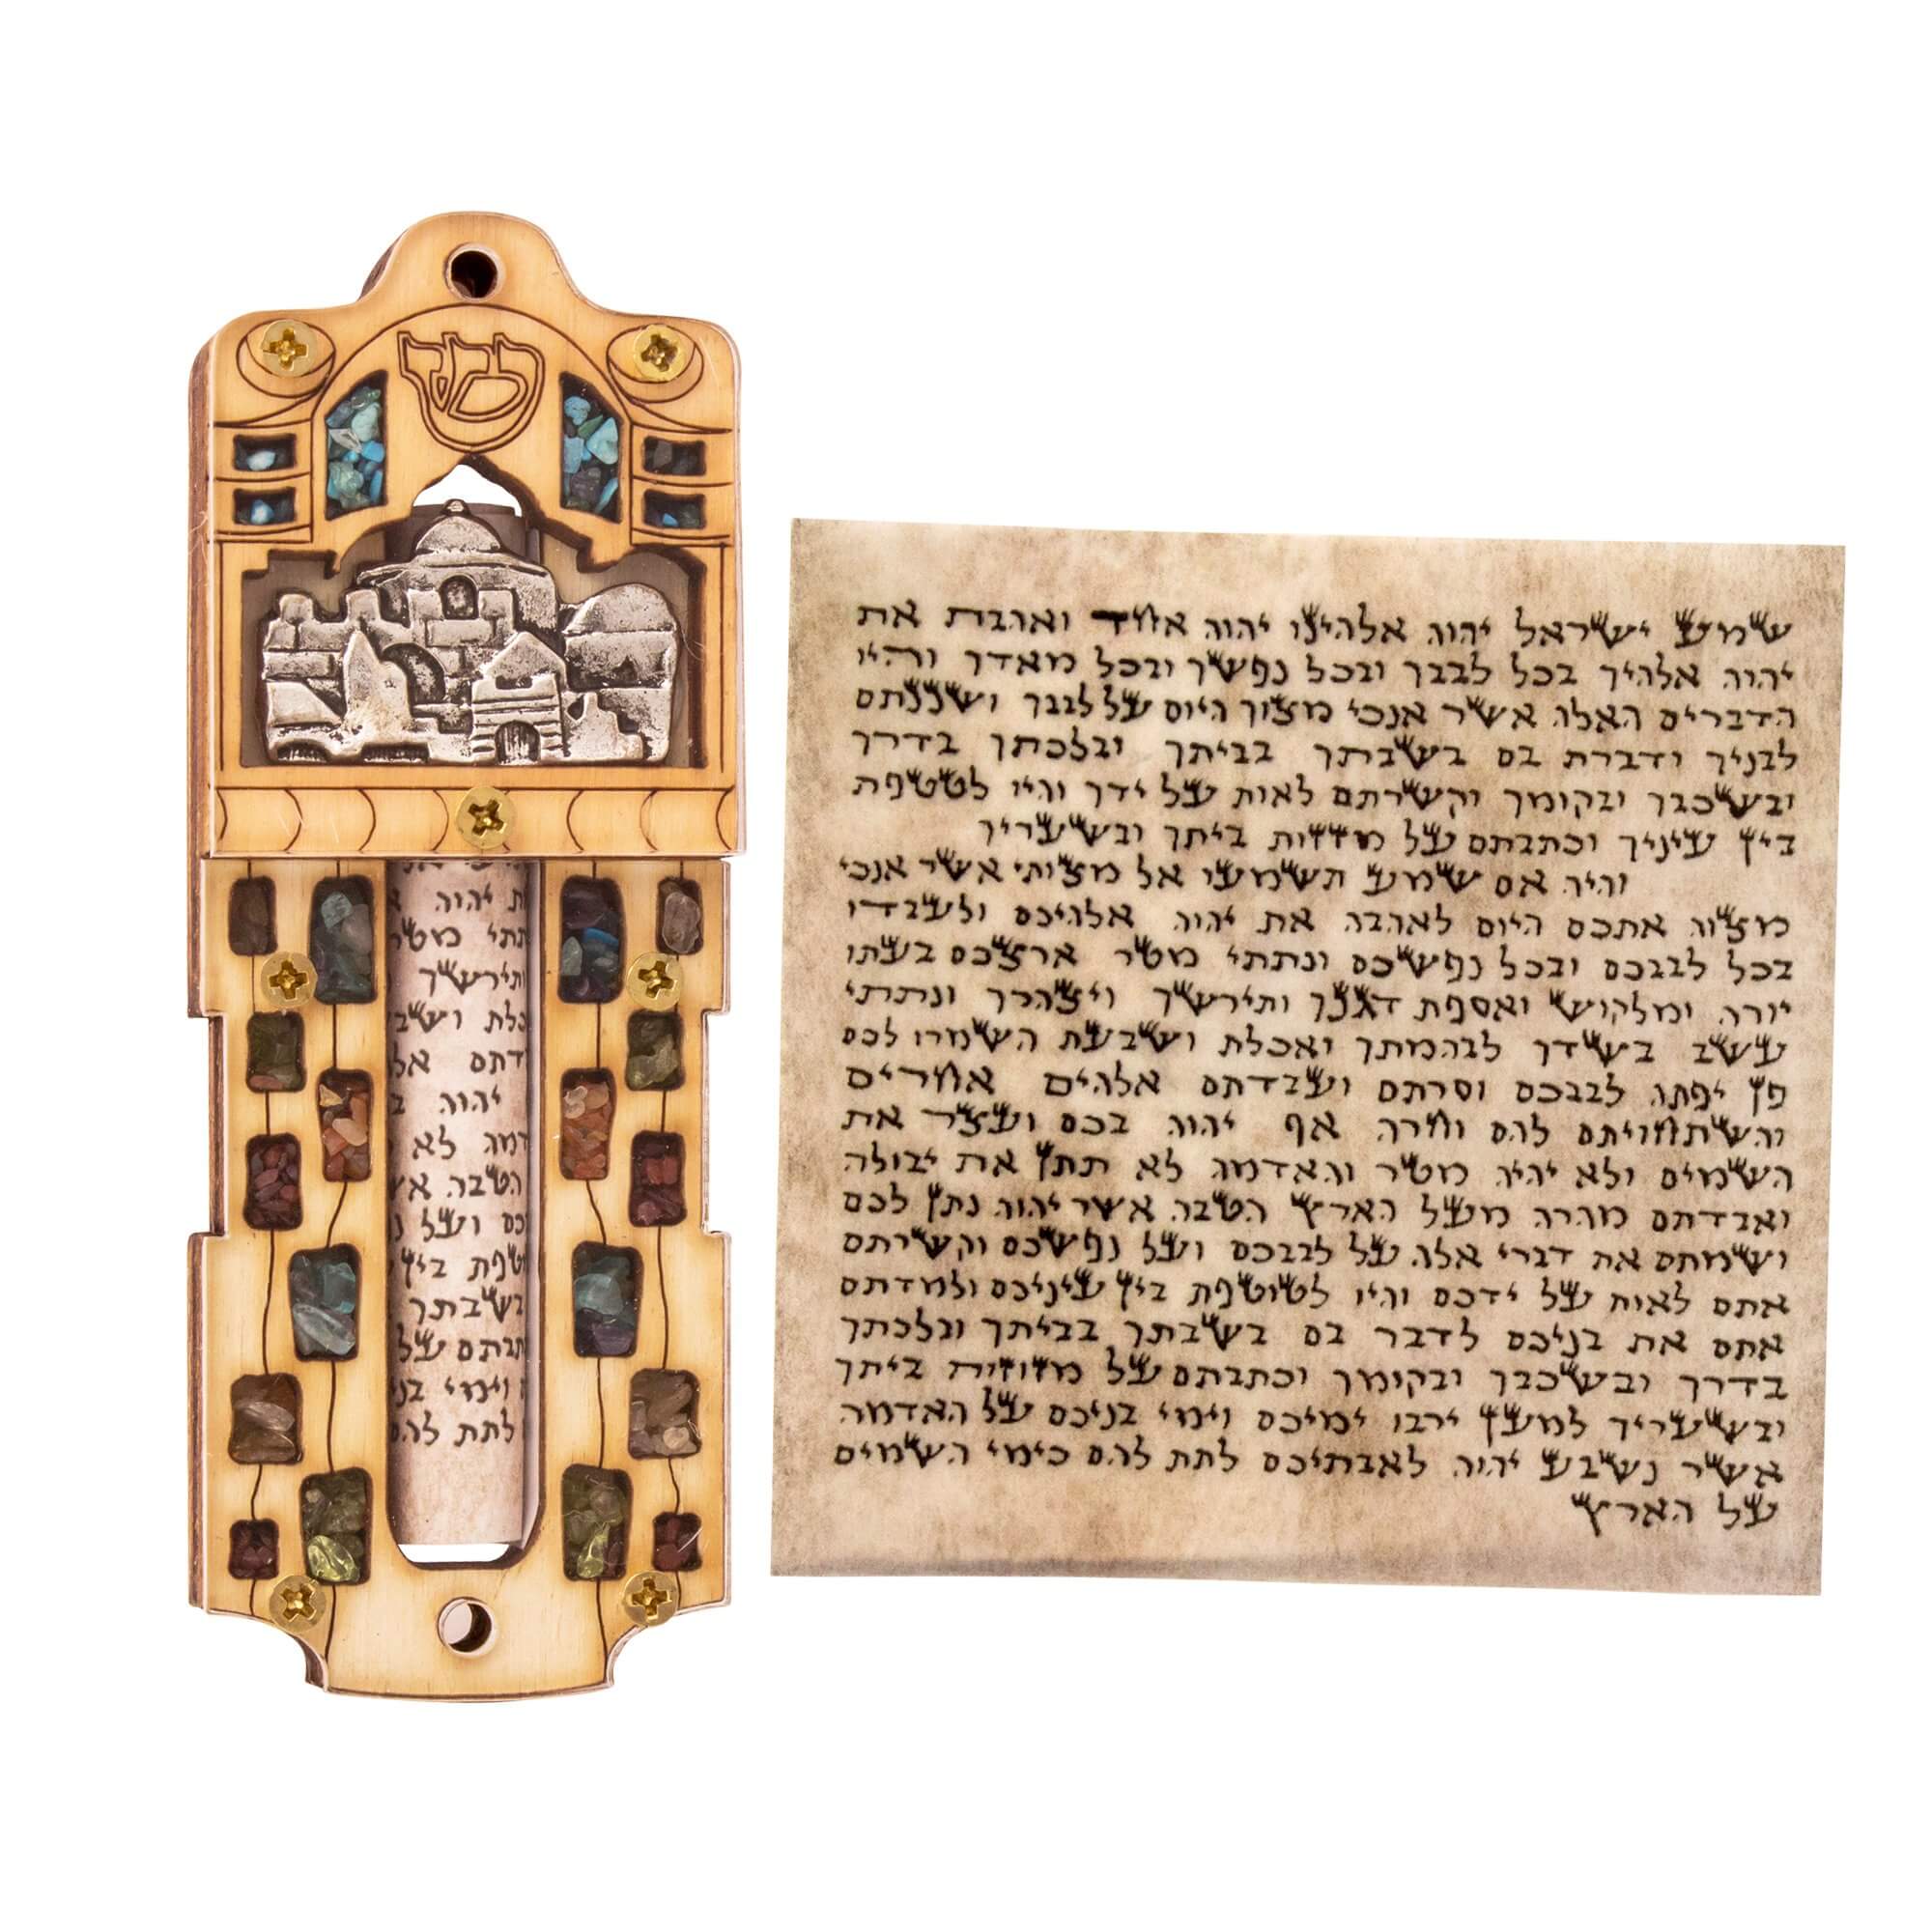 ש
שמע ישראל יהוה אלהינו יהוה אחד ואהבת את
יהוה אלהיך בכל לבבך ובכל נפשך ובכל מאדך והיו
הדברים האלה אשר אנכי מצוך היום על לבבך ושננתם
לבניך ודברת בם בשבתך בביתך ובלכתך בדרך
ובשכבך ובקומך וקשרתם לאות על ידך והיו לטטפת
בין עיניך וכתבתם על מזזות ביתך ובשעריך
והיה אם שמע תשמעו אל מצותי אשר אנכי
מצוה אתכם היום לאהבה את יהוה אלהיכם ולעבדו
בכל לבבכם ובכל נפשכם ונתתי מטר ארצכם בעתו
יורה ומלקוש ואספת דגנך ותירשך ויצהרך ונתתי
עשב בשדך לבהמתך ואכלת ושבעת השמרו לכם
פן יפתה לבבכם וסרתם ועבדתם אלהים אחרים
והשתחויתם להם וחרה אף יהוה בכם ועצר את
השמים ולא יהיה מטר והאדמה לא תתן את יבולה
ואבדתם מהרה מעל הארץ הטבה אשר יהוה נתן לכם
ושמתם את דברי אלה על לבבכם ועל נפשכם וקשרתם
אתם לאות על ידכם והיו לטוטפת בין עיניכם ולמדתם
אתם את בניכם לדבר בם בשבתך בביתך ובלכתך
בדרך ובשכבך ובקומך וכתבתם על מזוזות ביתך
ובשעריך למען ירבו ימיכם וימי בניכם על האדמה
אשר נשבע יהוה לאבתיכם לתת להם כימי השמים
על הארץ
יהוה
ותירשך
יהוה
לא
הטבה
ועל
בשבתך
על
וימי
לתת